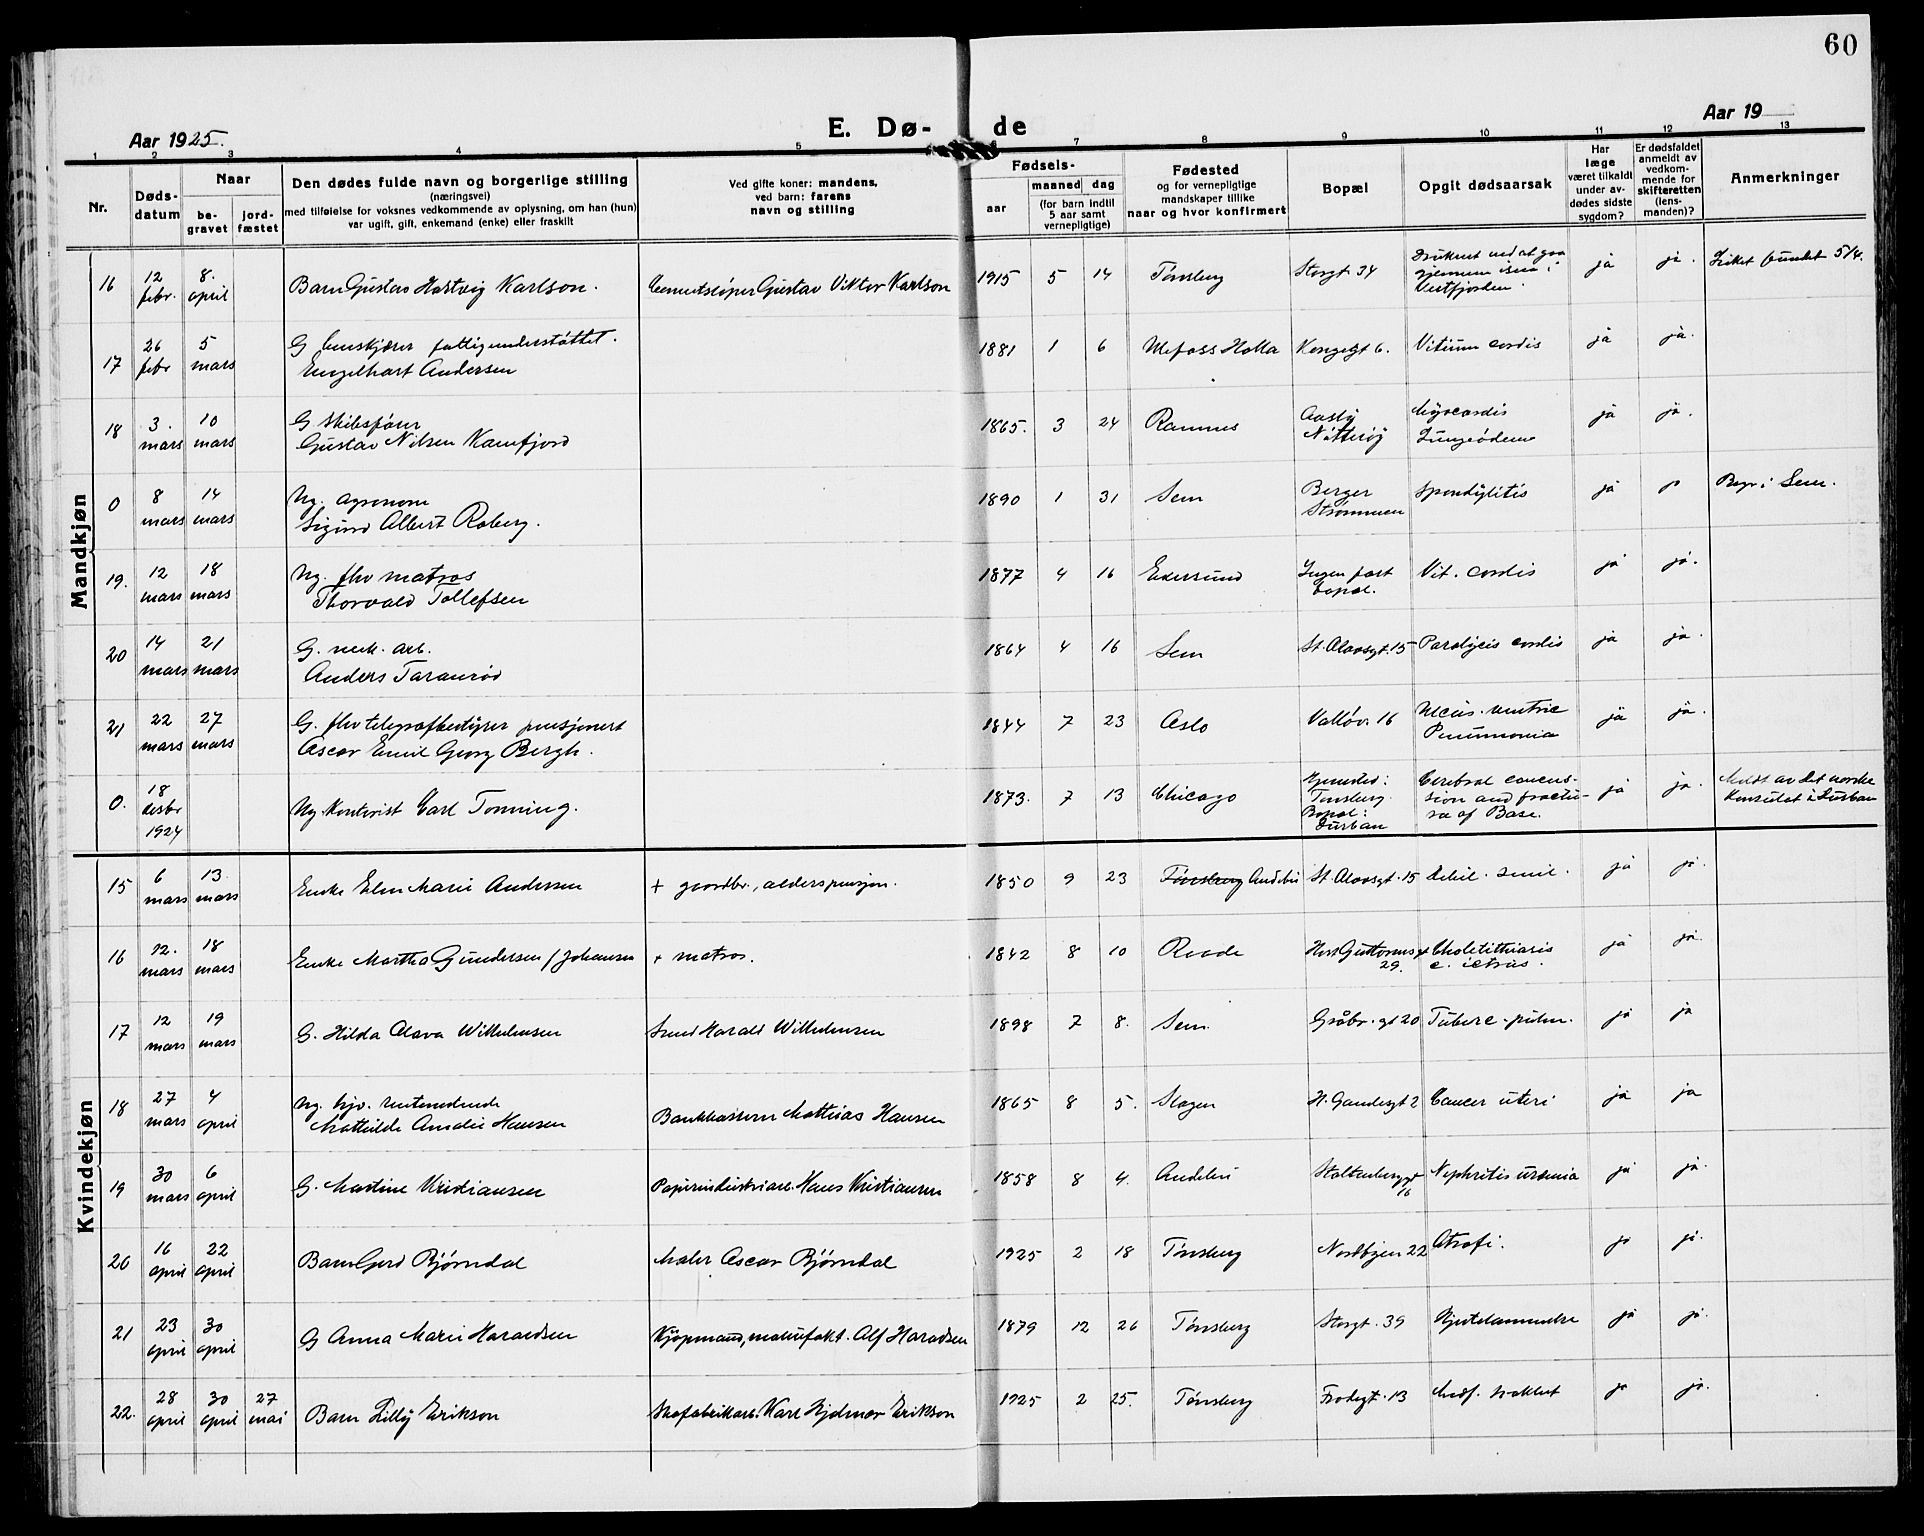 60
Aar 1925.
E. Dø- de
Aar 19
1 2 3 4 5 6 7 8 9 10 11 12 13
Nr.
Døds-
datum
Naar
be-
gravet
jord-
fæstet
Den dødes fulde navn og borgerlige stilling
(næringsvei)
med tilføielse for voksnes vedkommende av oplysning, om han (hun)
var ugift, gift, enkemand (enke) eller fraskilt
Ved gifte koner: mandens,
ved barn: farens
navn og stilling
Fødsels-
aar
maaned dag
(for barn indtil
5 aar samt
vernepligtige)
Fødested
og for vernepligtige
mandskaper tillike
naar og hvor konfirmert
Bopæl
Opgit dødsaarsak
Har
læge
været tilkaldt
under av-
dødes sidste
sygdom?
Er dødsfaldet
anmeldt av
vedkom-
mende for
skifteretten
(lens-
manden)?
Anmerkninger
Mandkjøn
16 12 febr. 8. april Barn Gustav Hartvig Karlson. Cementstøper Gustav Viktor Karlson 1915 5 14 Tønsberg Storgt 34 Druknet ved at gaa gjennem isen i Vestfjorden. ja ja. Liket fundet 5/4.
17 26 febr 5 mars G fattigunderstøttet. Engelhart Andersen 1881 1 6 Ulefoss Holla Kongegt 6. Vitium cordis ja ja.
18 3. mars 10 mars G Skibsfører Gustav Nilsen Kamfjord 1865. 3 24 Ramnes Aasly Nøtterøy Myocardis Lungeødem ja ja.
0 8 mars 14 mars Ug. agronom Sigurd Albert Roberg. 1890 1 31 Sem Berger Strømmen Spondylitis ja ja Begr i Sem.
19. 12 mars 18 mars Ug. fhv matros Thorvald Tollefsen 1877 4 16 Egersund Ingen fast bopæl. Vit. cordis ja ja.
20 14 mars 21 mars G. mek. arb. Anders Taranrød 1864 4 16 Sem St. Olavsgt. 15 Paralysis cordis ja ja.
21 22 mars 27 mars G. fhv telegrafbestyrer pensjonert Oscar Emil Georg Bergh. 1844 7 23 Oslo Valløv. 16 Ulcus. ventric Pneumonia ja ja.
0. 18 desbr 1924 Ug. Kontorist Carl Tonning. 1873. 7 13 Chicago Hjemsted: Tønsberg. Bopæl: Durban Cerebral concussion and fractura of Base. ja ja. Meldt av det norske Konsulat i Durban
Kvindekjøn
15 6 mars 13. mars Enke Elen Marie Andersen + gaardbr., alderspensjon. 1850 9 23 Tønsberg Andebu St. Olavsgt. 15 Debil. senil. ja ja.
16 12. mars 18 mars Enke Martha Gundersen f Johansen + matros. 1842 8 10 Raade Hert Guttormsgt 29. Cholelithiasis c. ictrus. ja ja.
17 12 mars 19 mars G. Hilda Olava Wilhelmsen Smed Harald Wilhelmsen 1898 7 8. Sem. Gråbr. gt 20 Tuberc. pulm. ja ja
18 27 mars 4 april Ug. hjv. Mathilde Amalie Hansen Bankkasserer Mathias Hansen 1865 8 5. Slagen H. Gandesgt 2 Cancer uteri ja ja
19 30 mars 6 april G. Martine Kristiansen Papirindustriarb. Hans Kristiansen 1858 8 4. Andebu Stoltenberggt 16 Nephritis uræmia ja ja.
20 16 april 22 april Barn Gerd Bjørndal Maler Oscar Bjørndal 1925 2 18 Tønsberg Nordbyen 22 Atrofi. ja ja.
21 23 april 30 april G Anna Marie Haraldsen Kjøpmand, manufakt. Alf Haraldsen 1879 12 26 Tønsberg Storgt. 39 Hjertelammelse ja ja.
22. 28 april 30 april 27 mai Barn Lilly Erikson Skofabrikarb. Karl Hjalmar Erikson 1925 2 25. Tønsberg Frodegt. 13 Medf. svakhet ja ja.